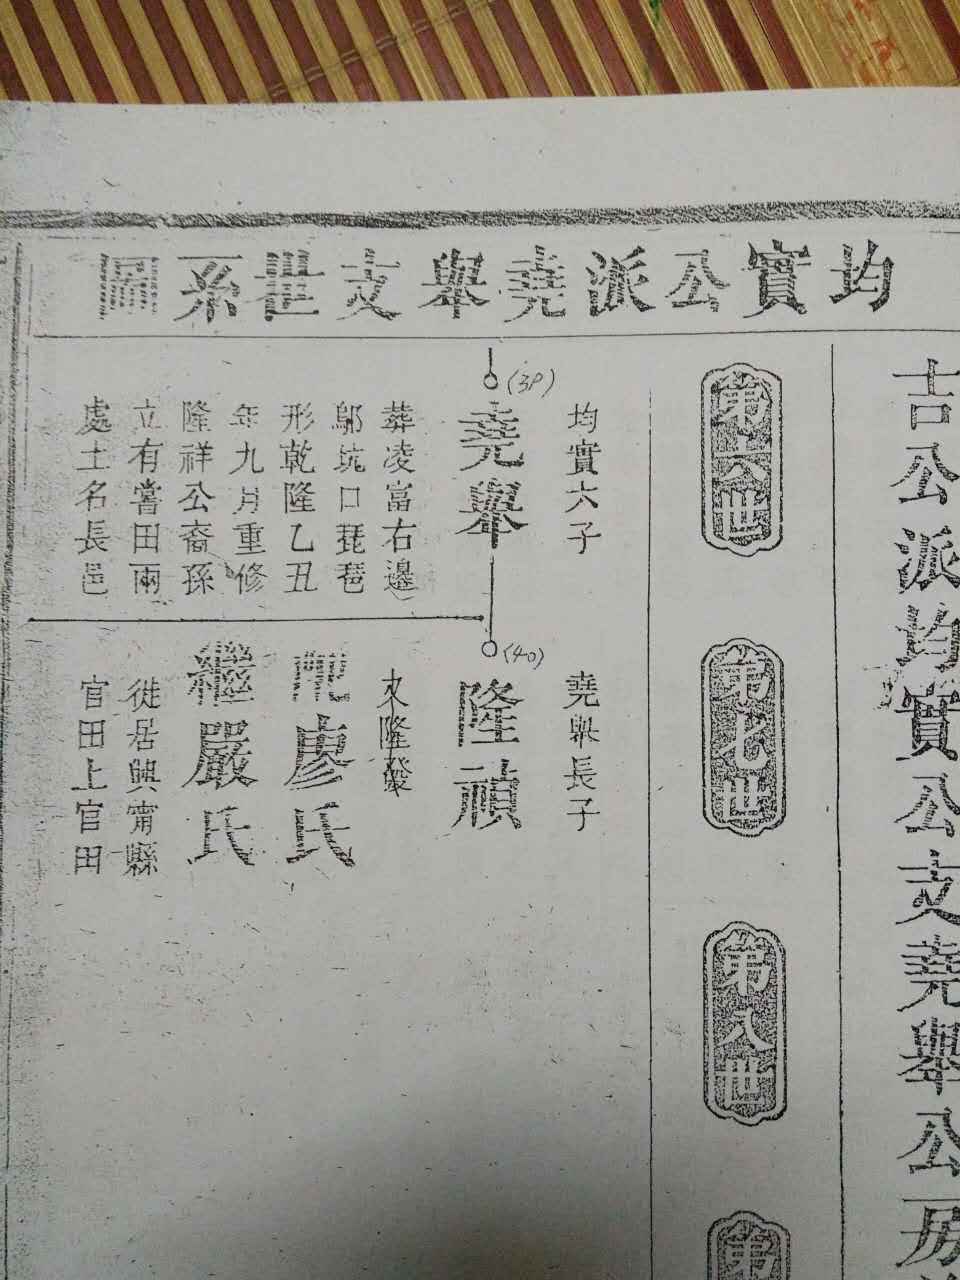 均實公派堯舉支世系圖
吉公派均實公支堯舉公房
第六世
第七世
第八世
第
均實六子
(39)
堯舉
葬凌富右邊
鄔坑口琵琶
形乾隆乙丑
年九月重修
隆祥公裔孫
立有嘗田兩
處土名長邑
堯舉長子
(40)
隆禎
隆發
廖氏
繼嚴氏
徙居興甯縣
官田上官田